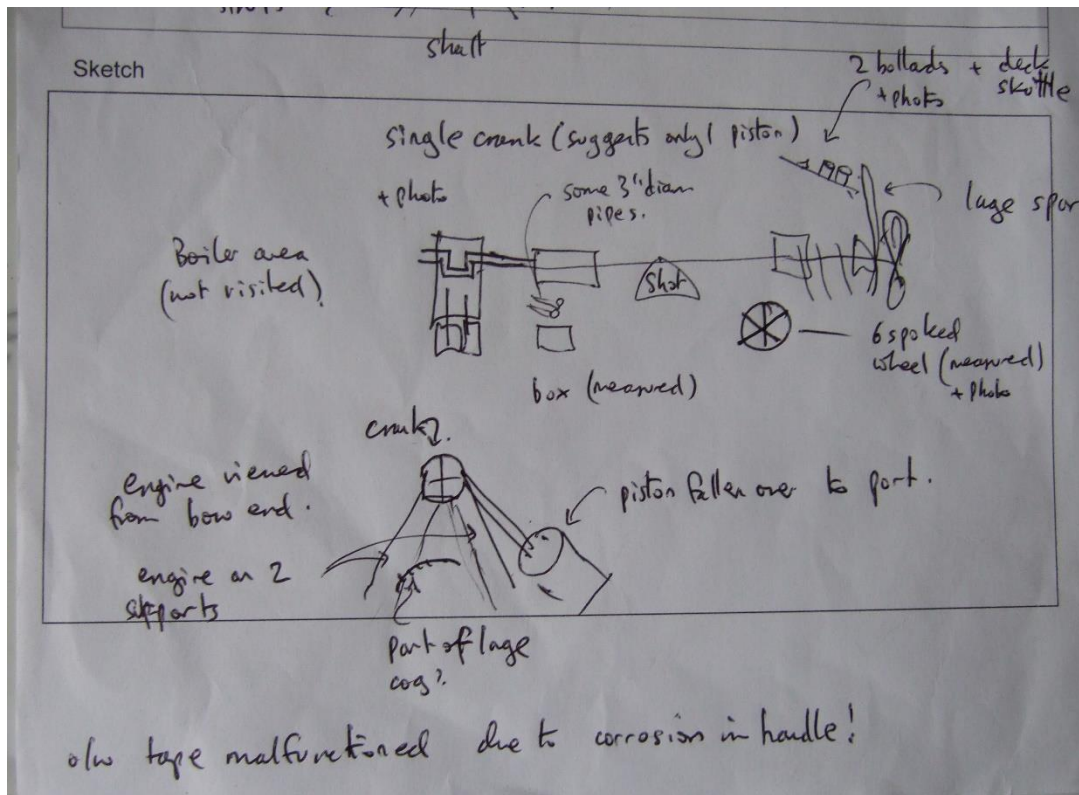 shaft
Sketch
2 bollards + deck
+ photo skuttle
single crank (suggests only 1 piston)
+ photo
some 3" diam
pipes.
lage spar
Boiler area
(not visited)
shot
6 spoked
wheel (measured)
+ photo
box (measured)
crank?
engine viewed
from bow end.
piston fallen over to port.
engine on 2
supports
part of lage
cog?
u/w tape malfunctioned due to corrosion in handle!